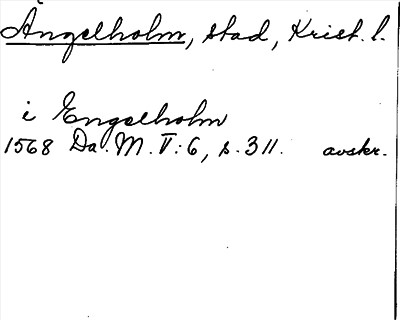 Ängelholm, stad, Krist. l.
i Engelholm
1568 Da. M. V:6, s. 311. avskr.